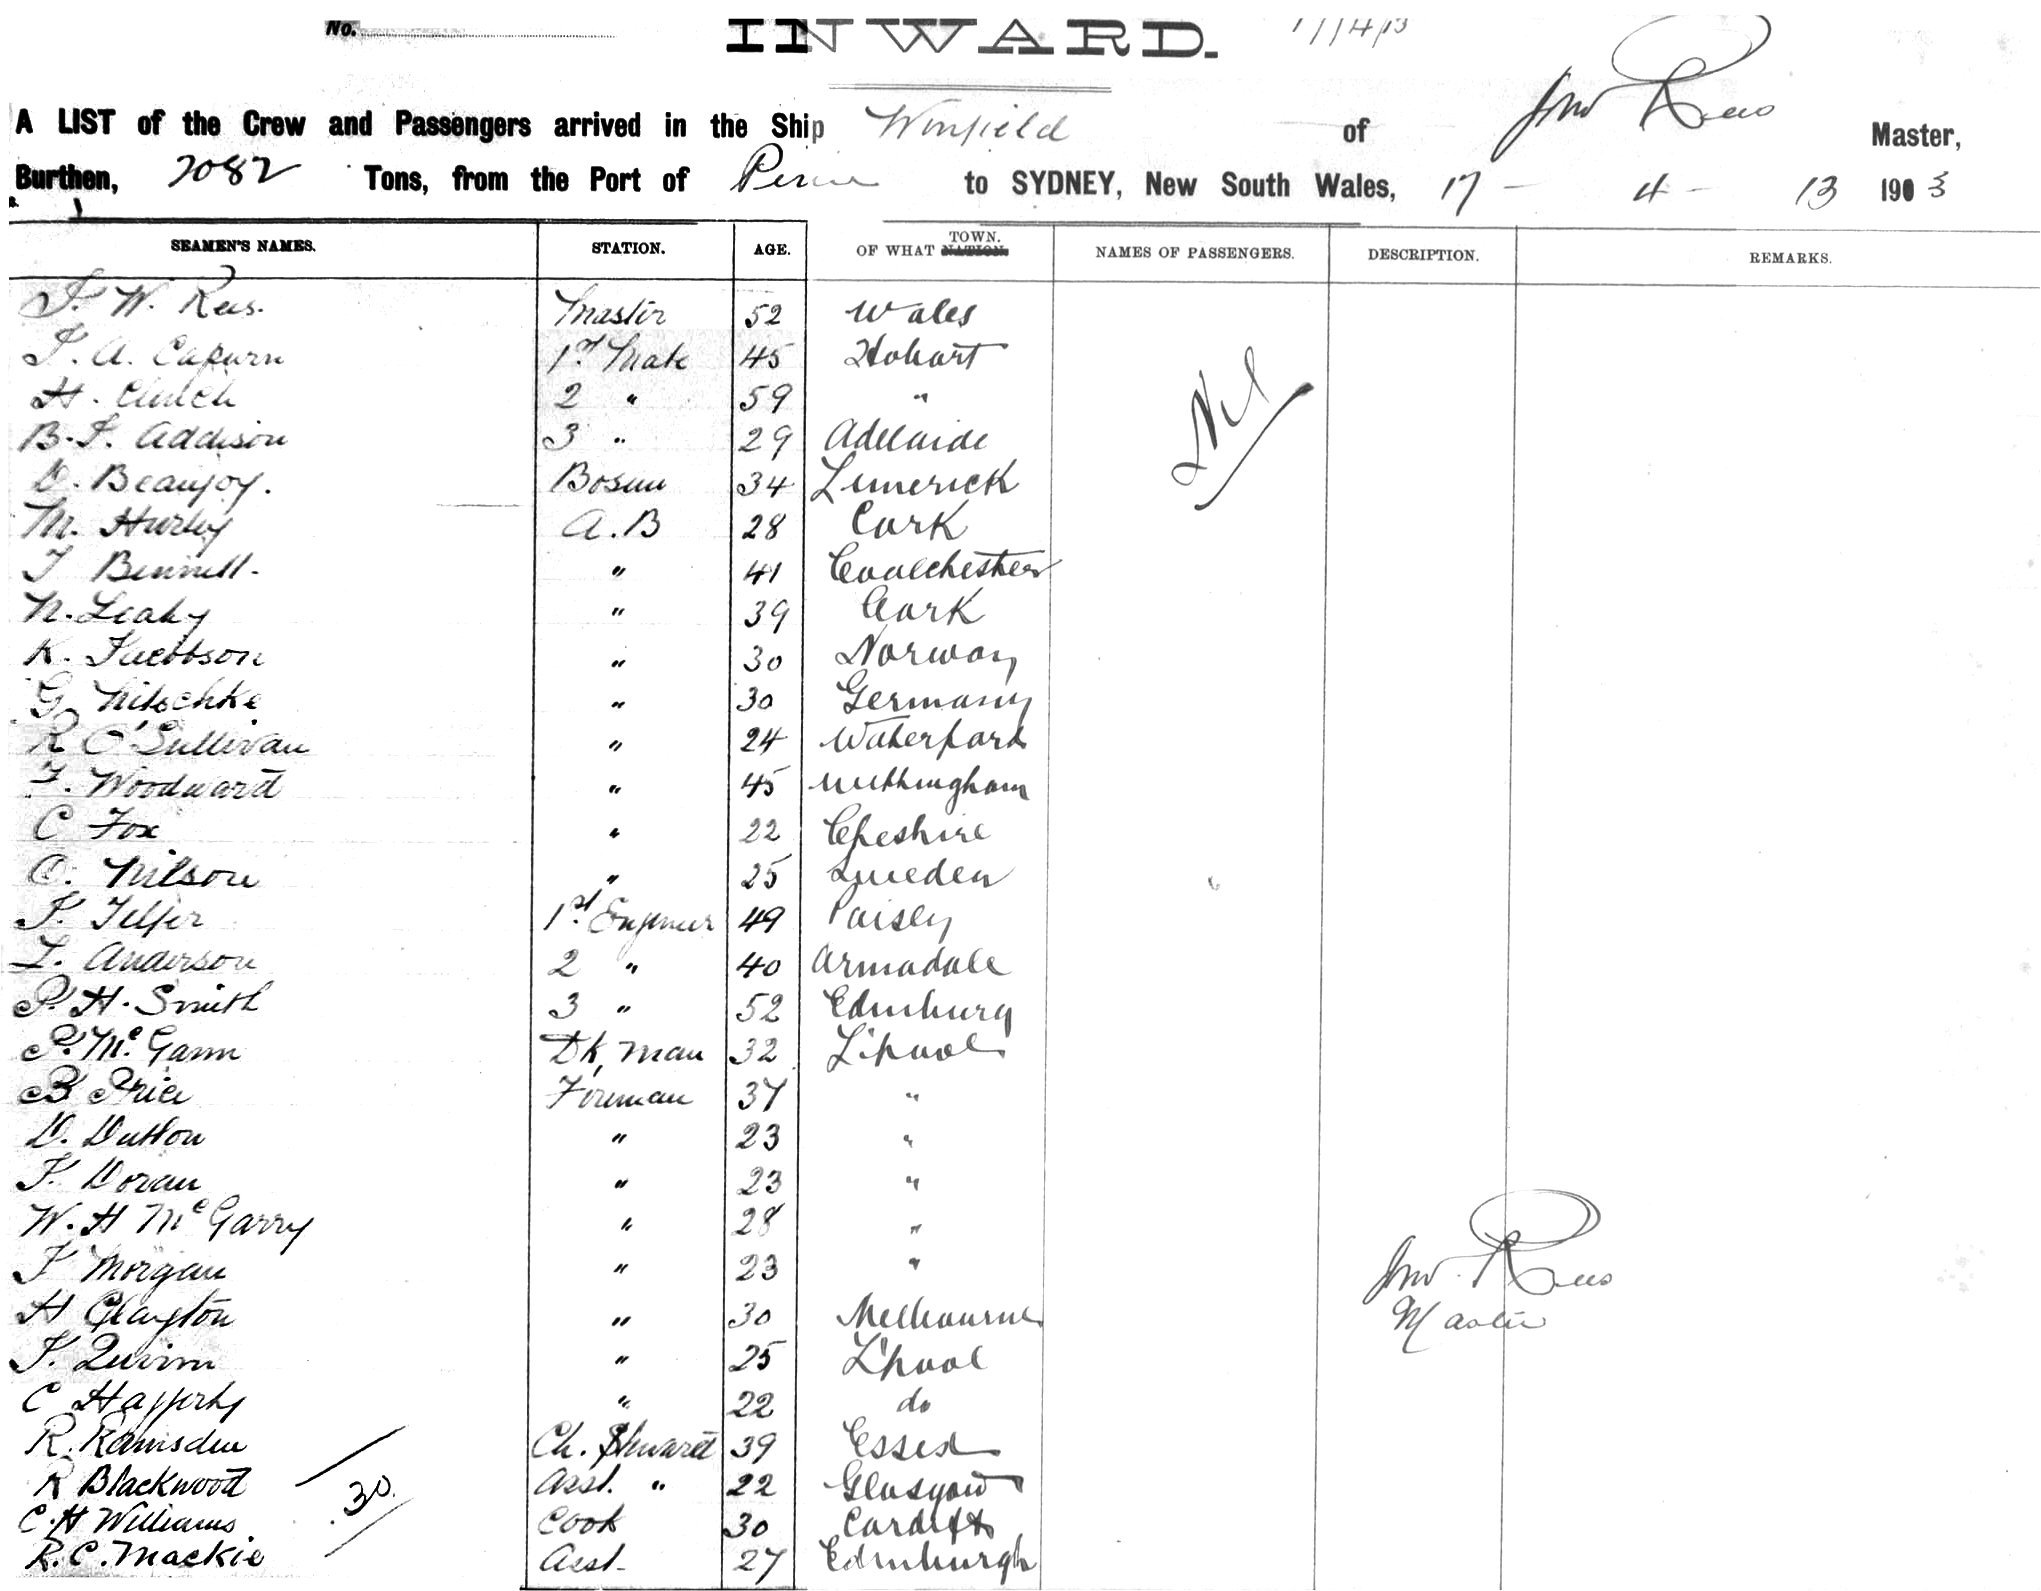 No. INWARD. 17/4/13
A LIST of the Crew and Passengers arrived in the Ship Winfield of Jno Rees Master,
Burthen, 2082 Tons, from the Port of to SYDNEY, New South Wales, 17 - 4 - 13 190 3
SEAMEN'S NAMES. STATION. AGE. OF WHAT NATION TOWN. NAMES OF PASSENGERS. DESCRIPTION. REMARKS.
J. W. Rees. Master 52 Wales
1st Mate 45 Hobart
H. 2 " 59 "
B. J. Addison 3 " 29 Adelaide
D. Beaujoy. Bosun 34 Limerick
Nil
M. Hurley A.B 28 Cork
T Bennett. " 41 Coolchester
N. Leahy " 39 Cork
K. " 30 Norway
G. Nitschke " 30 Germany
R O'Sullivan " 24 Waterford
F. Woodward " 45 Nuttingham
C Fox " 22 Cheshire
O. Nilson " 25 Sweden
J. Telfer 1st Engineer 49 Paisly
L. Anderson 2 " 40 Armadale
P. H. Smith 3 " 52 Edinburg
P. McGann Dk, man 32 L'pool
B Price Fireman 37 "
D. Dutton " 23 "
J. Doran " 23 "
W. H McGarry " 28 "
J Morgan " 23 "
Jno. Rees
Master
H Clayton " 30 Melbourne
J. Quinn " 25 L'pool
C Hafferty " 22 do
R. Ramsden Ch. Steward 39 Essex
R Blackwood Asst. " 22 Glasgow
30.
C. H Williams Cook 30 Cardiff
R. C. Mackie Asst. 27 Edinburgh